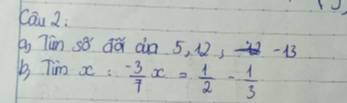 Câu 2:
a, Tìm số đối của 5,12, -13
b, Tìm x : -3/7 x = 1/2 - 1/3